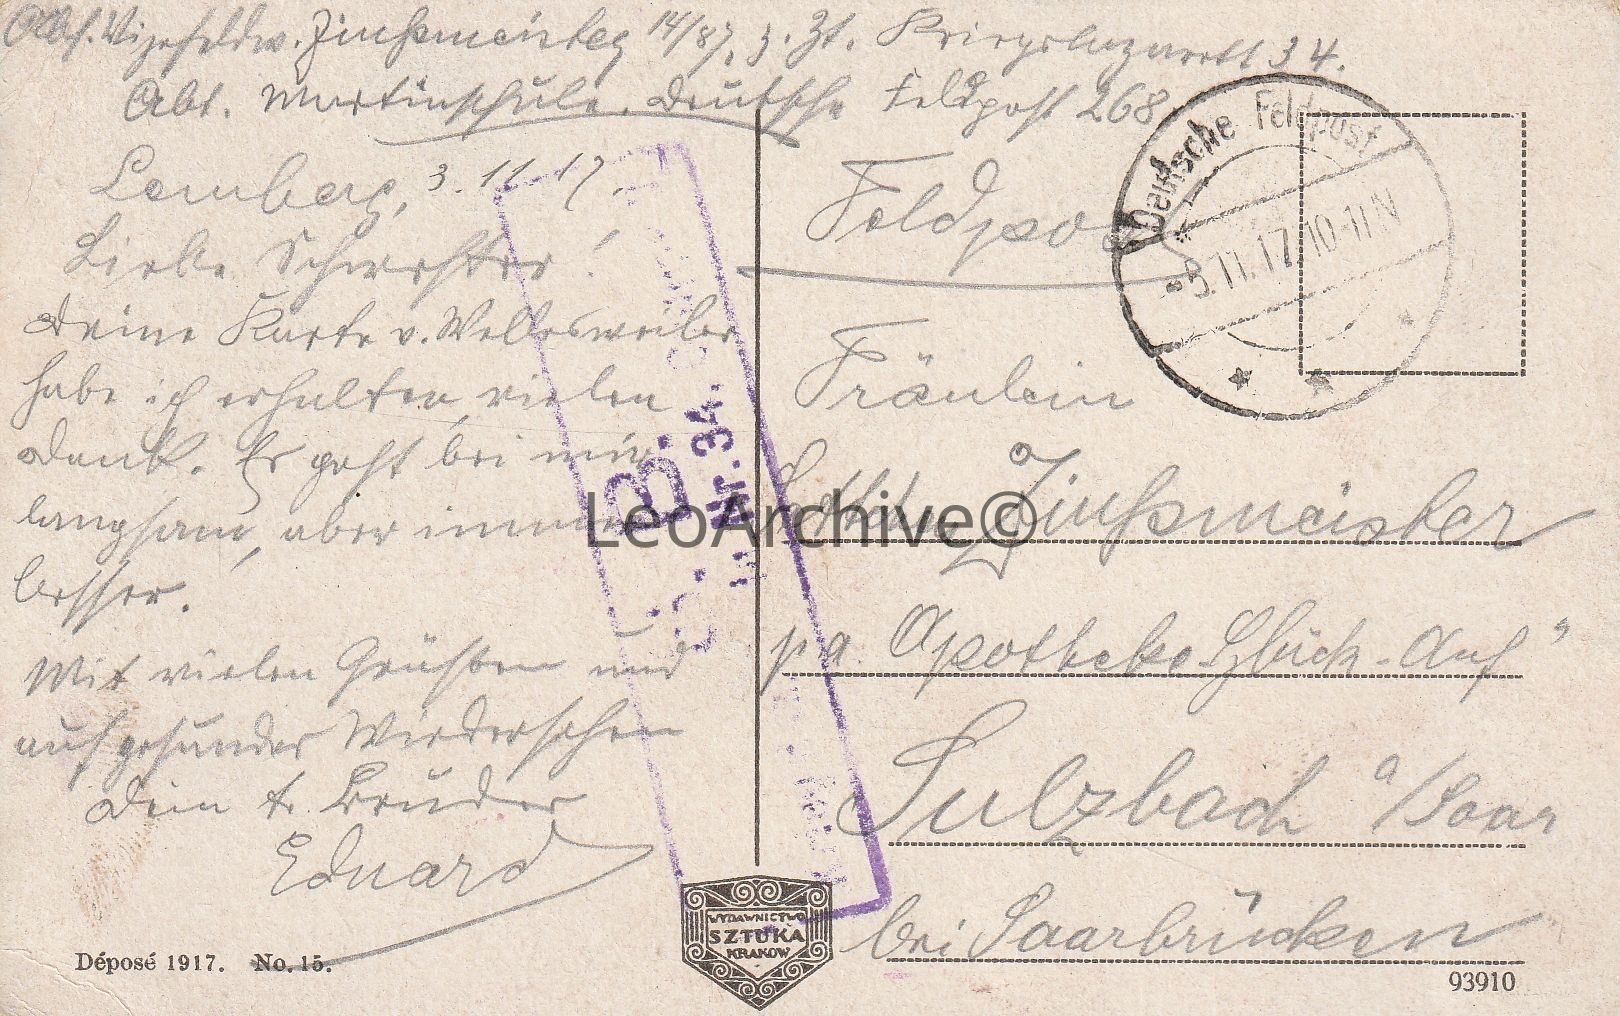 Abs. Vizefeldw. Zinßmeister 14/87, z. Zt. Kriegslazarett 34.
Abt. Martinschule, Deutsche Feldpost 268
Lemberg, 3.11.17.
Liebe Schwester!
Deine Karte v. Wellesweiler
habe ich erhalten, vielen
Dank. Es geht bei mir
langsam, aber immer
besser.
Mit vielen Grüßen und
auf gesundes Wiedersehen
Dein tr. Bruder
Eduard
Déposé 1917. No. 15.
WYDAWNICTWO
SZTUKA
KRAKÓW
S. B.
Nr. 34.
Deutsche Feldpost
5.11.17. 10-11 N
Feldpost
Fräulein
Zinßmeister
p a. Apotheke "Glück-Auf"
Sulzbach a/Saar
bei Saarbrücken
93910
LeoArchive©